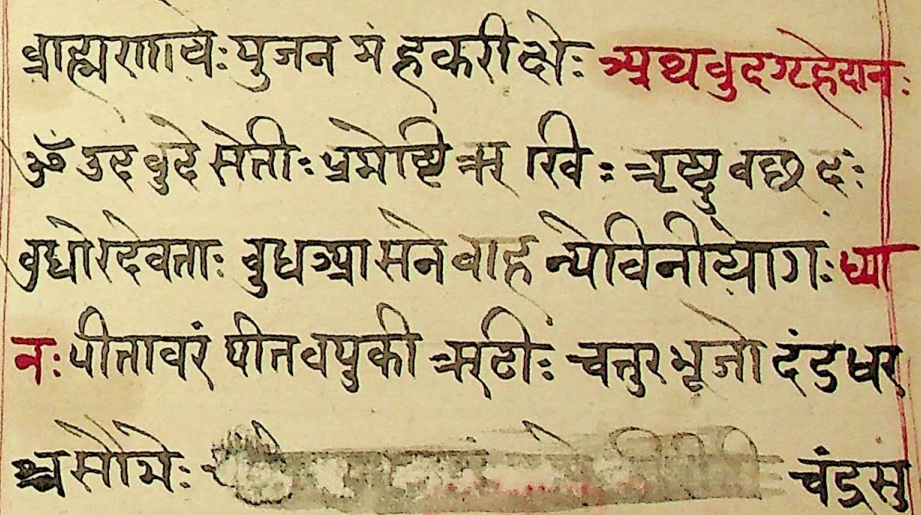 ब्राह्मणायेः पुजन मं हकरीक्षेः अथ वुदग्रहेदानः
ॐ उदवुदे सेतीः प्रमेष्टि ऋ खिः त्रृष्टुवछदंः
वुधोरदेवताः वुधआसनेवाहन्येविनीयोगः ध्या
नः पीतावरं पीतवपुकीऋटीः चत्तुरभूजो दंडधर
श्च सौमेः चंद्रसु